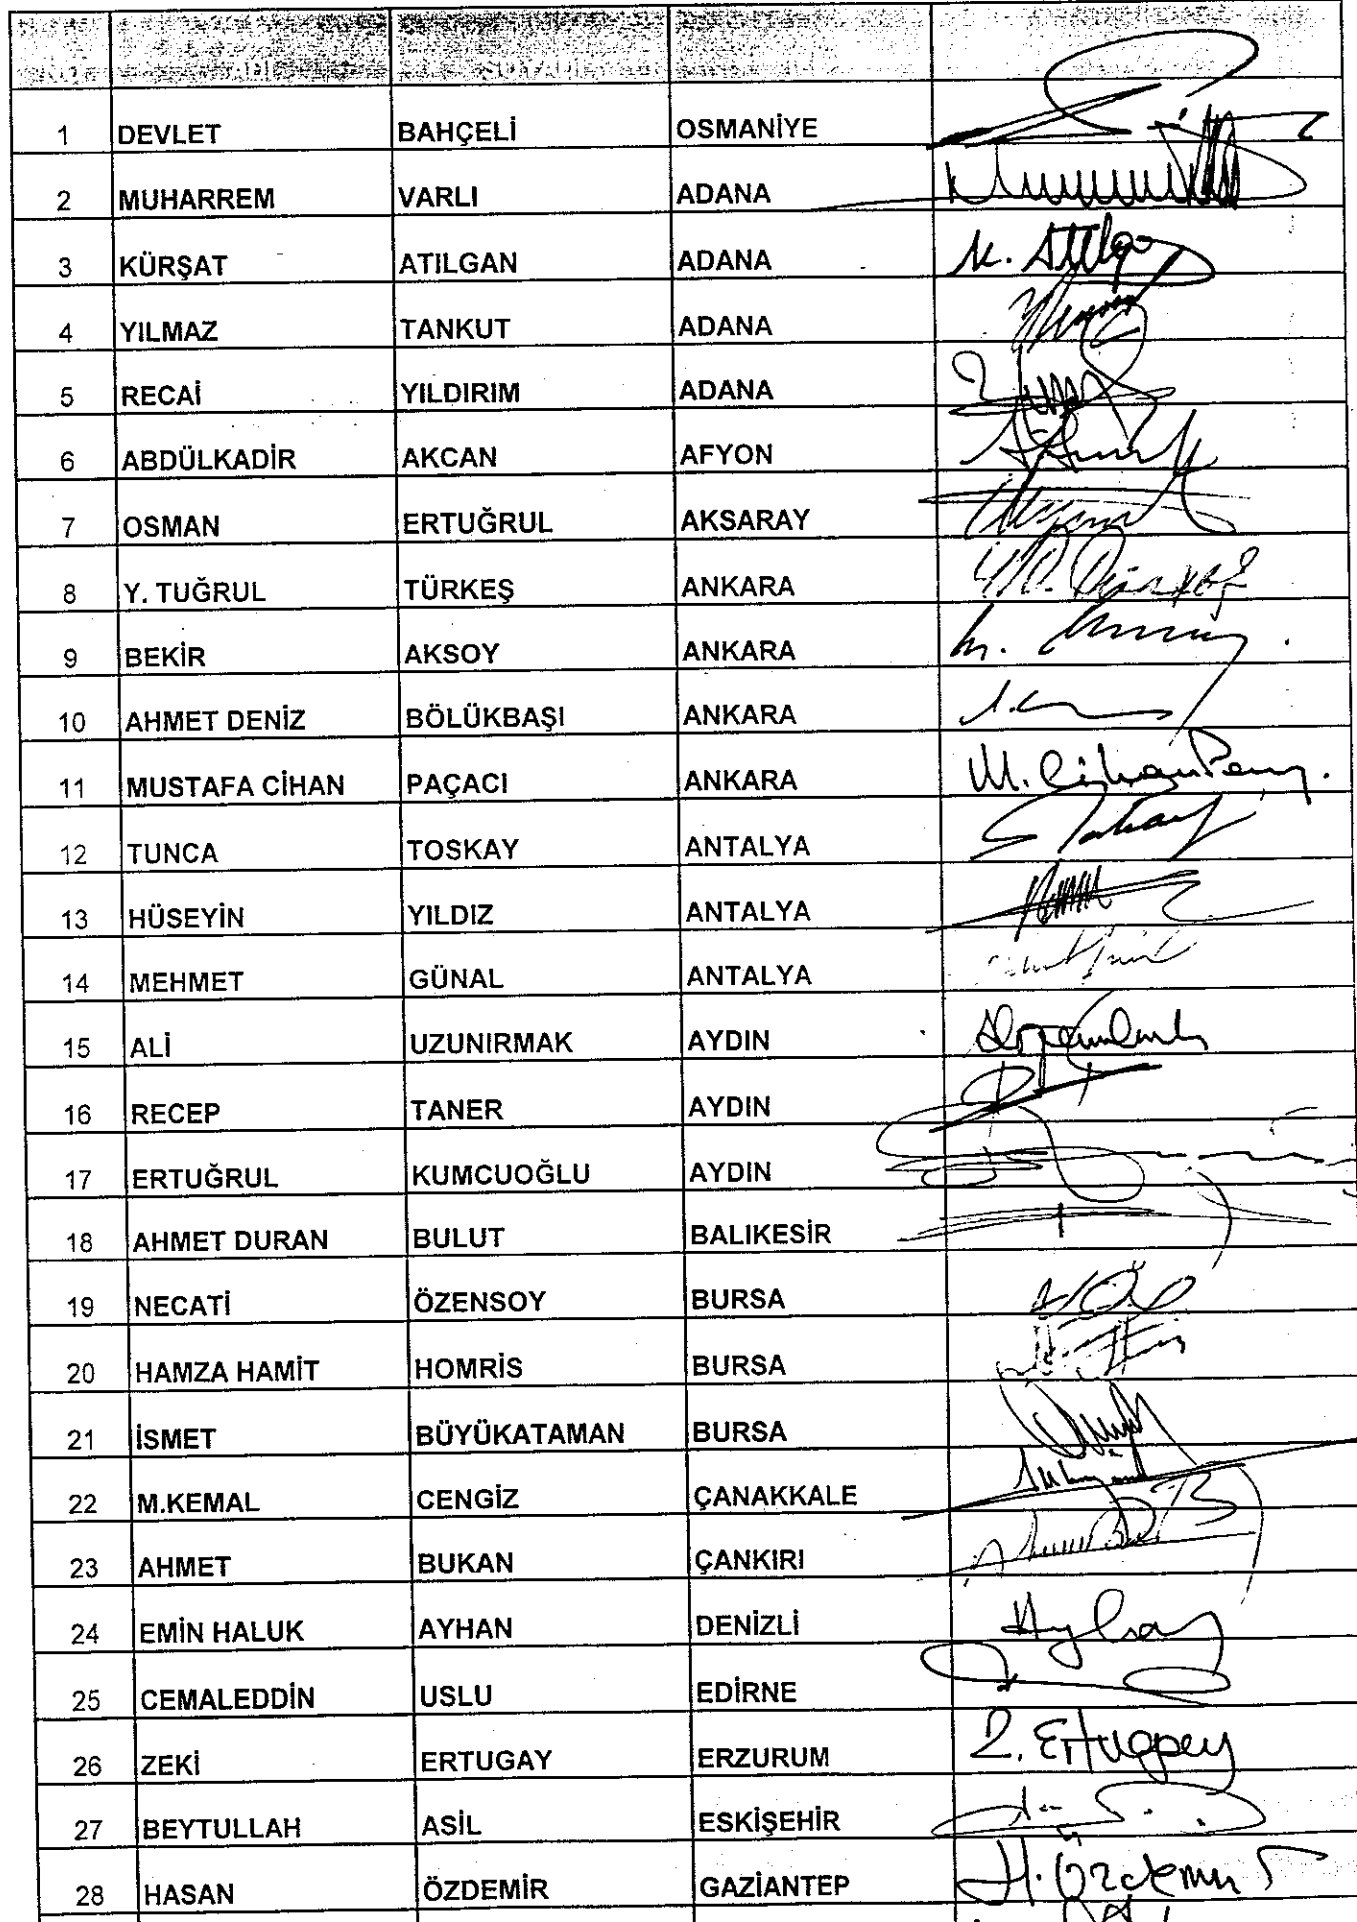 ADI SOYADI
1 DEVLET BAHÇELİ OSMANİYE
2 MUHARREM VARLI ADANA
3 KÜRŞAT ATILGAN ADANA K. Atılga
4 YILMAZ TANKUT ADANA
5 RECAİ YILDIRIM ADANA
6 ABDÜLKADİR AKCAN AFYON
7 OSMAN ERTUĞRUL AKSARAY
8 Y. TUĞRUL TÜRKEŞ ANKARA
9 BEKİR AKSOY ANKARA
10 AHMET DENİZ BÖLÜKBAŞI ANKARA
11 MUSTAFA CİHAN PAÇACI ANKARA M. Cihan
12 TUNCA TOSKAY ANTALYA
13 HÜSEYİN YILDIZ ANTALYA
14 MEHMET GÜNAL ANTALYA
15 ALİ UZUNIRMAK AYDIN
16 RECEP TANER AYDIN
17 ERTUĞRUL KUMCUOĞLU AYDIN
18 AHMET DURAN BULUT BALIKESİR
19 NECATİ ÖZENSOY BURSA
20 HAMZA HAMİT HOMRİS BURSA
21 İSMET BÜYÜKATAMAN BURSA
22 M.KEMAL CENGİZ ÇANAKKALE
23 AHMET BUKAN ÇANKIRI
24 EMİN HALUK AYHAN DENİZLİ
25 CEMALEDDİN USLU EDİRNE
26 ZEKİ ERTUGAY ERZURUM Z. Ertugay
27 BEYTULLAH ASİL ESKİŞEHİR
28 HASAN ÖZDEMİR GAZİANTEP H. Özdemir